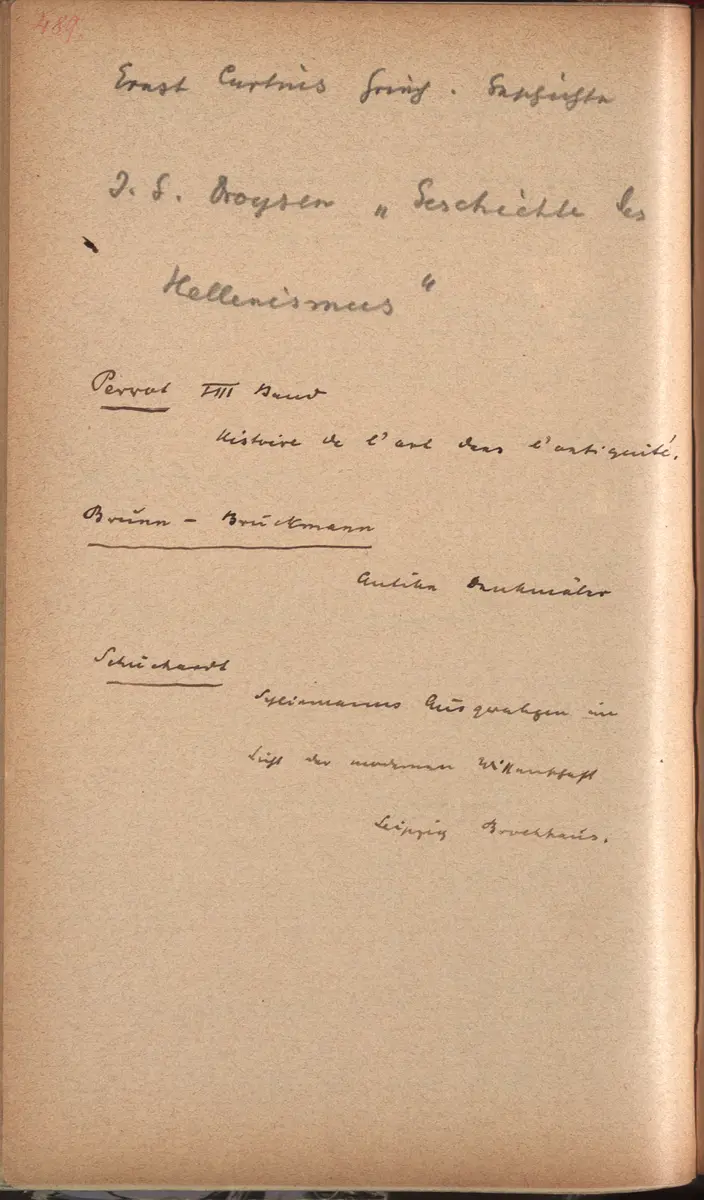 489.
Ernst Curtius Griech. Geschichte
J. G. Droysen „Geschichte des
Hellenismus“
Perrot VIII Band
Histoire de l'art dans l'antiquité.
Brunn - Bruckmann
Antike Denkmäler
Schuchardt
Schliemanns Ausgrabungen im
Licht der modernen Wissenschaft
Leipzig Brockhaus.